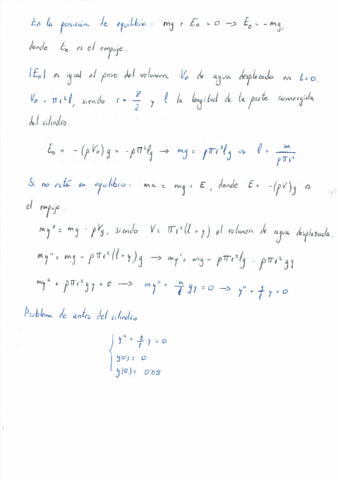 En la posición de equilibrio: mg + E₀ = 0 → E₀ = -mg,
donde E₀ es el empuje.
|E₀| es igual al peso del volumen V₀ de agua desplazada en t=0.
V₀ = πr²l, siendo r = 8/2 y l la longitud de la parte sumergida
del cilindro.
E₀ = -(ρV₀)g = -ρπr²lg → mg = ρπr²lg → l = m/ρπr²
Si no está en equilibrio: ma = mg + E, donde E = -(ρV)g es
el empuje.
my'' = mg - ρVg, siendo V = πr²(l+y) el volumen de agua desplazada.
my'' = mg - ρπr²(l+y)g → my'' = mg - ρπr²lg - ρπr²gy
my'' + ρπr²gy = 0 → my'' + m/l gy = 0 → y'' + g/l y = 0
Problema de antes del cilindro
y'' + g/l y = 0
y(0) = 0
y'(0) = 0'05